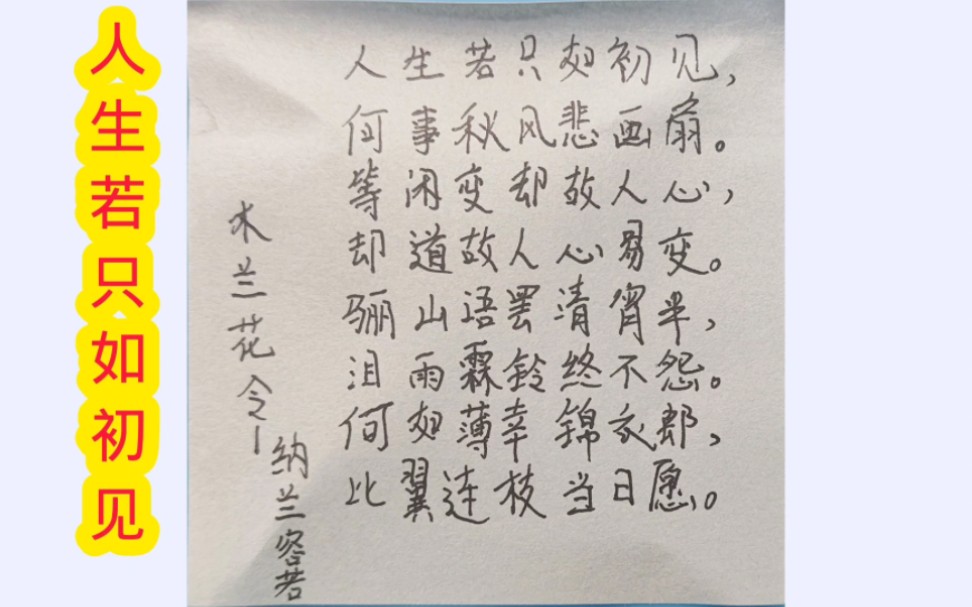 人生若只如初见
人生若只如初见,
何事秋风悲画扇。
等闲变却故人心,
却道故人心易变。
骊山语罢清宵半,
泪雨霖铃终不怨。
何如薄幸锦衣郎,
比翼连枝当日愿。
木兰花令—
纳兰容若